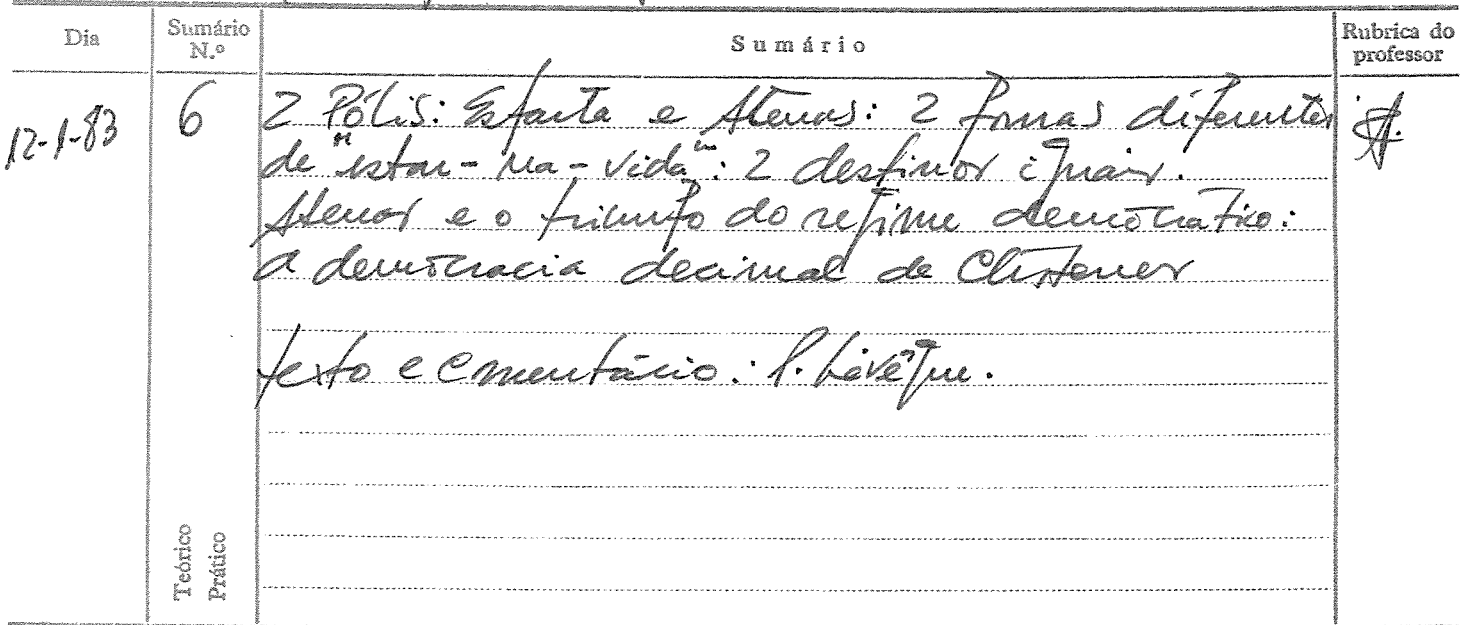 Dia Sumário N.º Sumário Rubrica do professor
12-1-83 6 2 Pólis: Esparta e Atenas: 2 formas diferentes
de "estar-na-vida": 2 destinos iguais.
Atenas e o triunfo do regime democrático:
a democracia decimal de Clístenes
texto e comentário: P. Lévêque.
Teórico
Prático